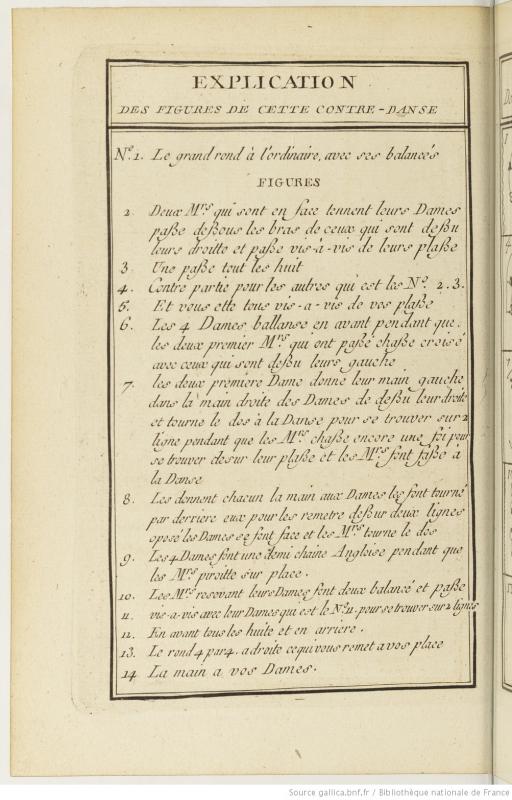 EXPLICATION
DES FIGURES DE CETTE CONTRE-DANSE
Nº. 1. Le grand rond à l'ordinaire, avec ses balancés
FIGURES
2. Deux Mrs qui sont en face tennent leurs Dames
paße deßous les bras de ceux qui sont deßu
leurs droitte et paße vis-à-vis de leurs plaße
3. Une paße tout les huit
4. Contre partie pour les autres qui est les Nº. 2. 3.
5. Et vous ette tous vis-a-vis de vos plaße
6. Les 4 Dames ballanse en avant pendant que
les deux premier Mrs qui ont paßé chaße croisé
avec ceux qui sont deßu leurs gauche
7. les deux premiere Dame donne leur main gauche
dans la main droite des Dames de deßu leur droite
et tourne le dos à la Danse pour se trouver sur 2
ligne pendant que les Mrs chaße encore une foi pour
se trouver desur leur plaße et les Mrs font faße à
la Danse
8. Les donnent chacun la main aux Dames les font tourné
par derriere eux pour les remetre deßur deux lignes
oposé les Dames se font face et les Mrs tourne le dos
9. Les 4 Dames font une demi chaine Angloise pendant que
les Mrs piroitte sur place.
10. Les Mrs recevant leurs Dames font deux balancé et paße
11. vis-a-vis avec leur Dames qui est le Nº 11. pour se trouver sur 2 lignes
12. En avant tous les huite et en arriere.
13. Le rond 4 par 4. a droite ce qui vous remet a vos place
14 La main a vos Dames.
Source gallica.bnf.fr / Bibliothèque nationale de France